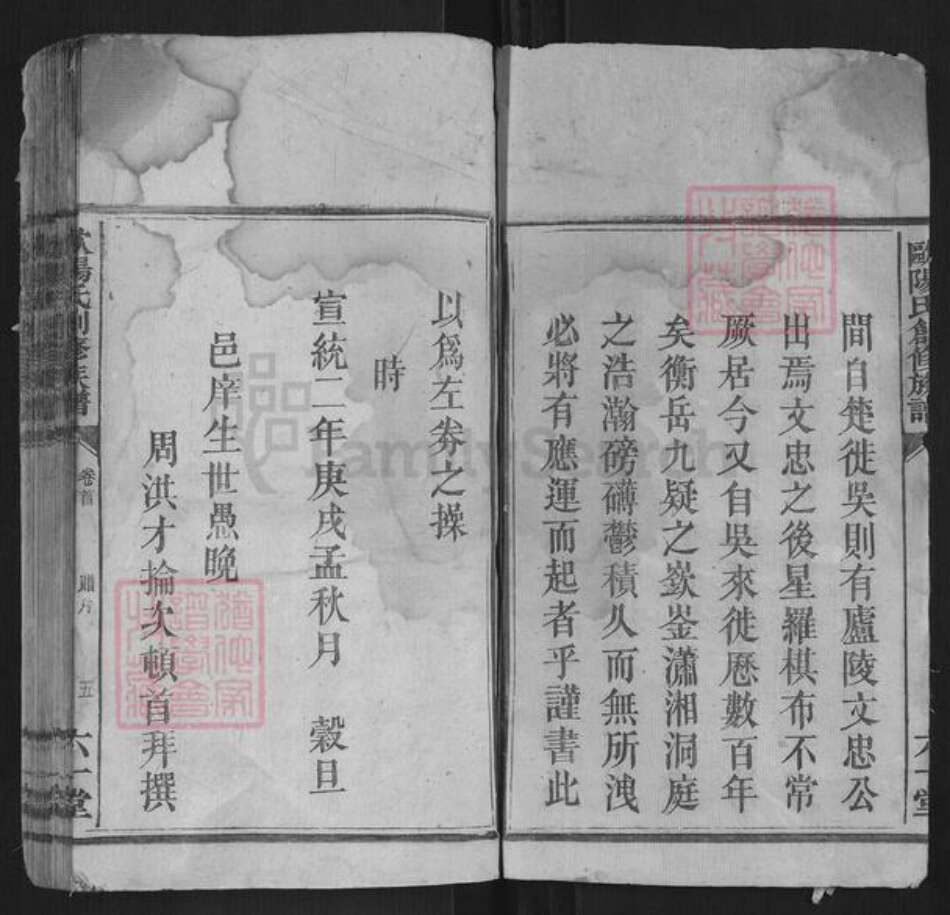 歐陽氏創修族譜
六一堂
間自楚徙吳則有廬陵文忠公
出焉文忠之後星羅棋布不常
厥居今又自吳來徙歷數百年
矣衡岳九疑之嶔崟瀟湘洞庭
之浩瀚磅礴鬱積久而無所洩
必將有應運而起者乎謹書此
以為左券之操
時
宣統二年庚戌孟秋月 穀旦
邑庠生世愚晚
周洪才掄次頓首拜撰
歐陽氏創修族譜
卷首
五
六一堂
FamilySearch